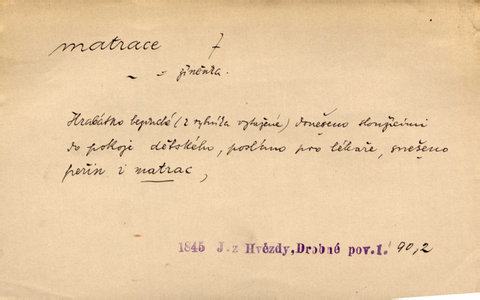 matrace f
~ = žíněnka.
Hraběátko lepudé (z rybníka vytažené) doneseno sloužícími
do pokoje dětského, posláno pro lékaře, snešeno
peřin i matrac,
1845 J. z Hvězdy, Drobné pov. I. 90,2